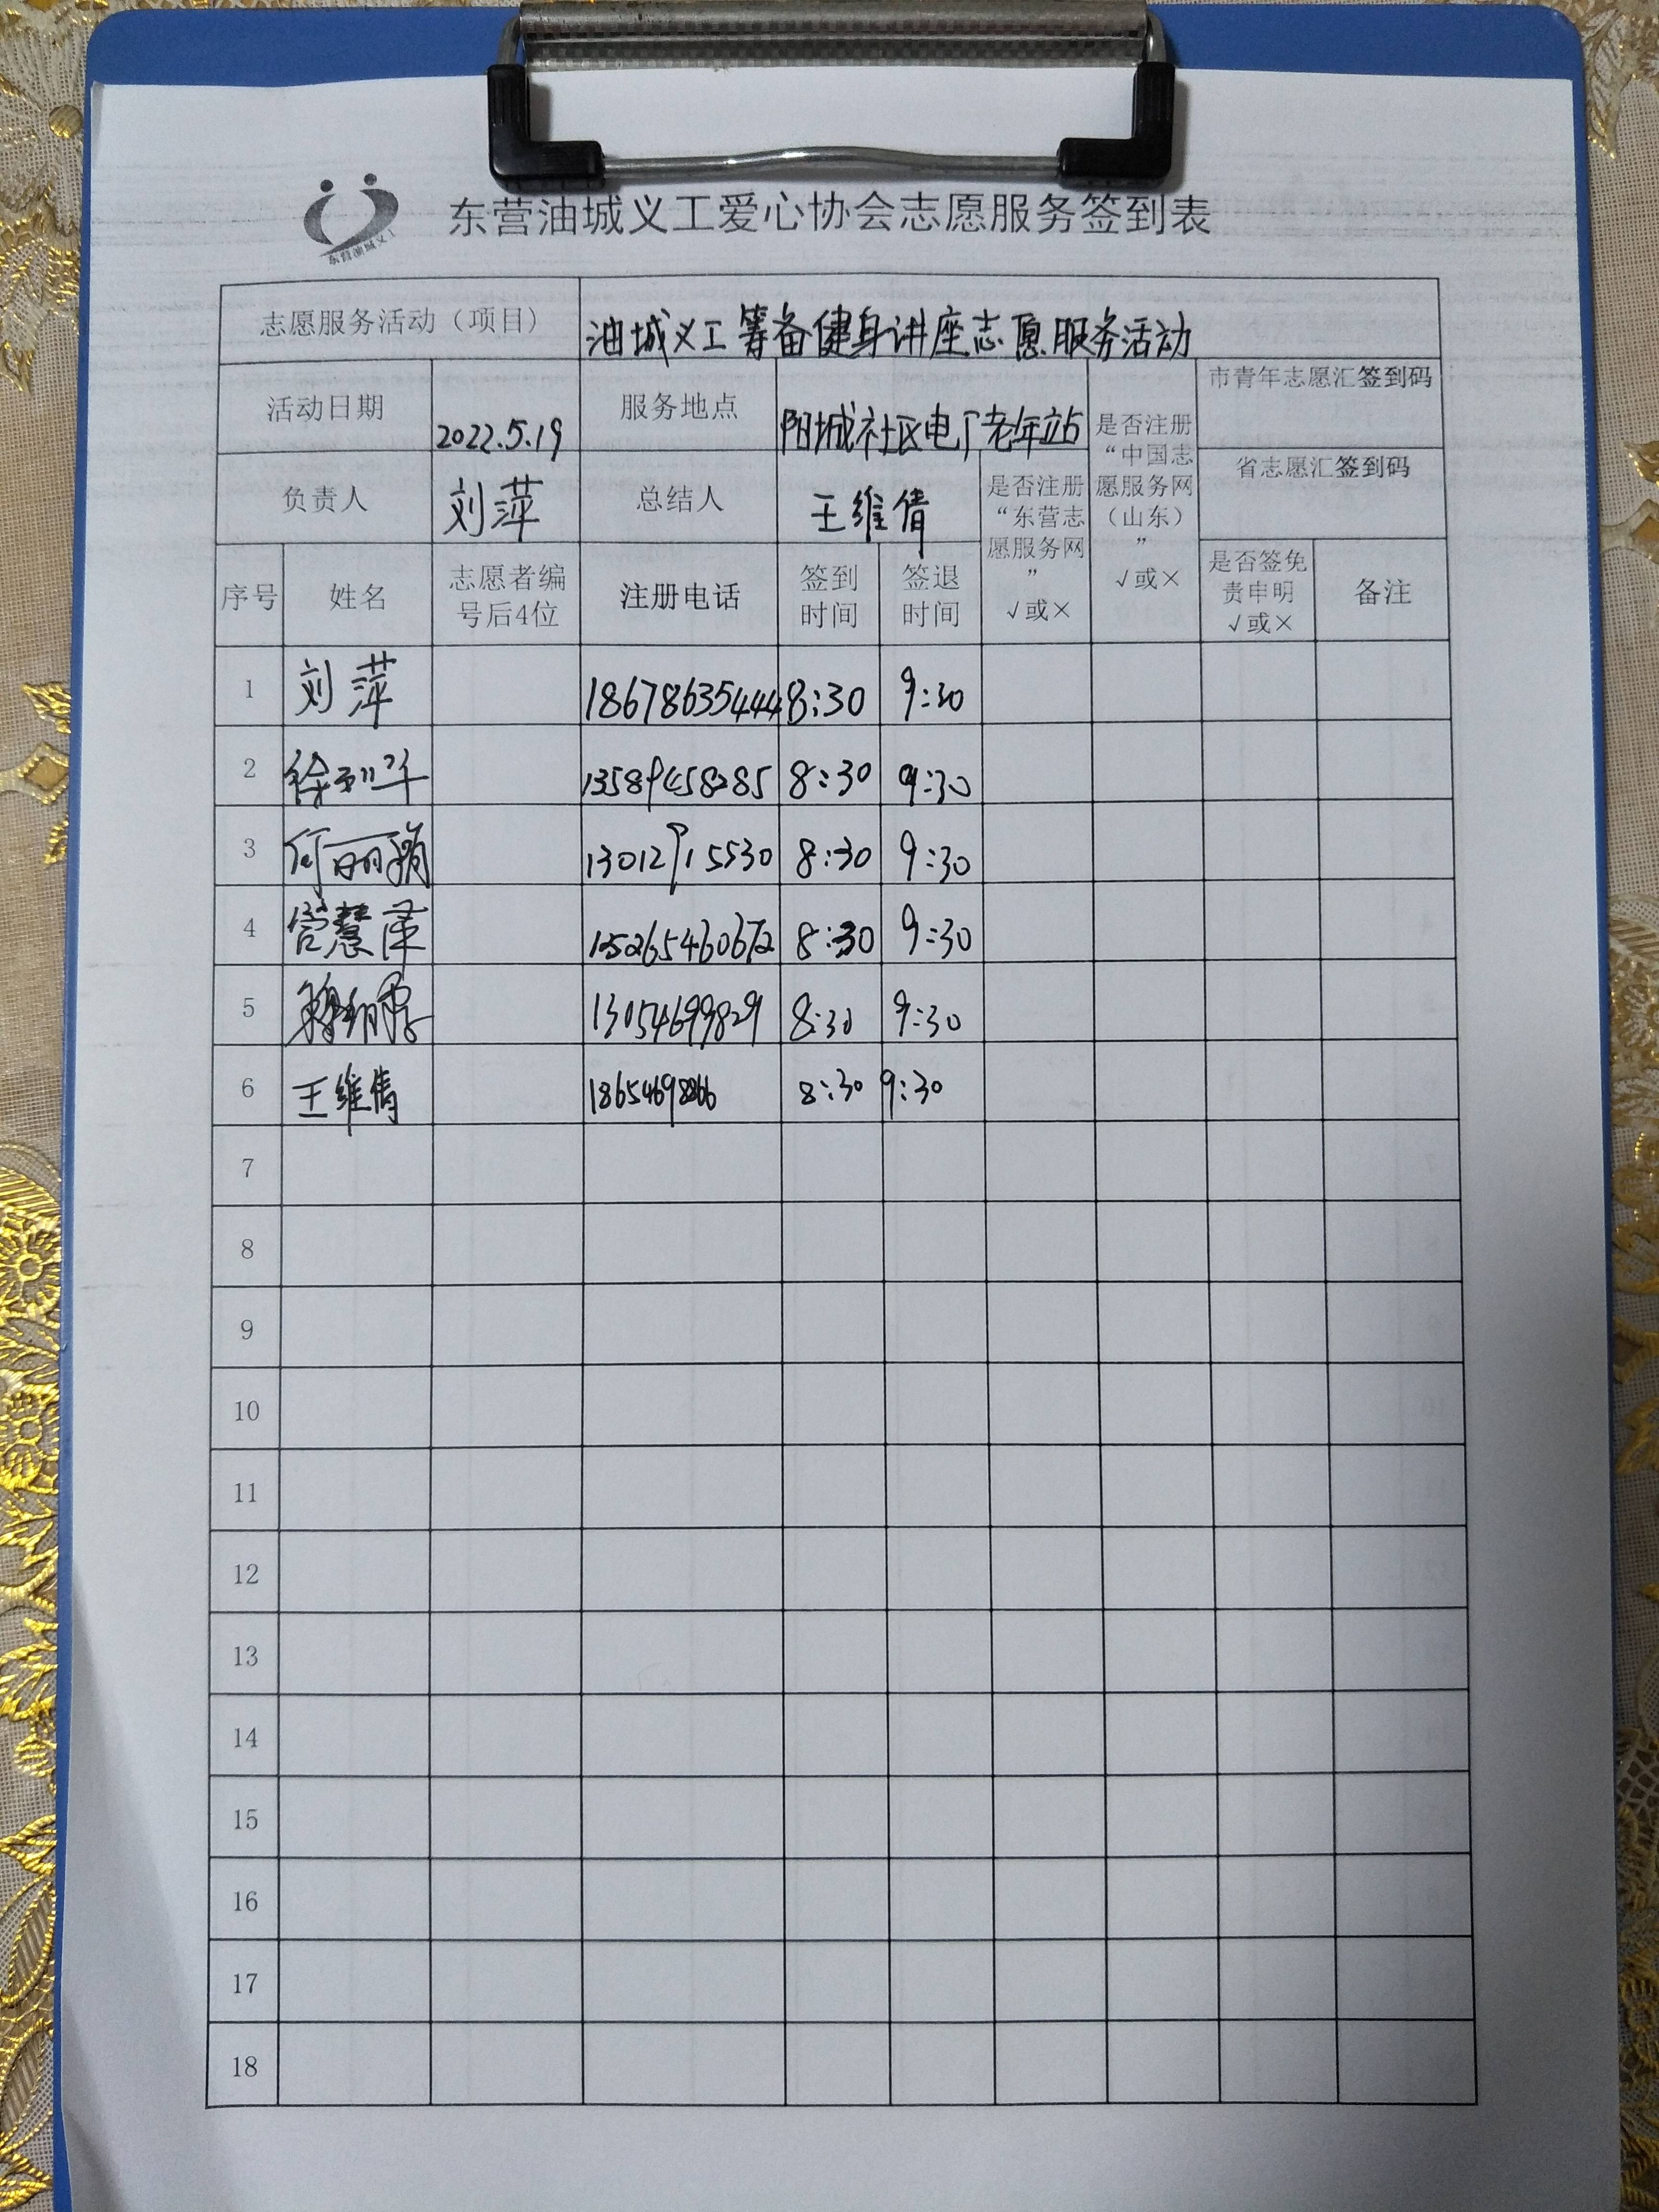 东营油城义工
东营油城义工爱心协会志愿服务签到表
志愿服务活动（项目） 油城义工筹备健身讲座志愿服务活动
活动日期 2022.5.19 服务地点 阳城社区电厂老年站
市青年志愿汇签到码
省志愿汇签到码
负责人 刘萍 总结人 王维倩
是否注册
“东营志
愿服务网
”
√或×
是否注册
“中国志
愿服务网
（山东）
”
√或×
序号 姓名
志愿者编
号后4位
注册电话
签到
时间
签退
时间
是否签免
责申明
√或×
备注
1 刘萍 18678635444 8:30 9:30
2 13589458285 8:30 9:30
3 何丽娟 13012715530 8:30 9:30
4 管慧萍 15265460672 8:30 9:30
5 13054699829 8:30 9:30
6 王维倩 8:30 9:30
7
8
9
10
11
12
13
14
15
16
17
18